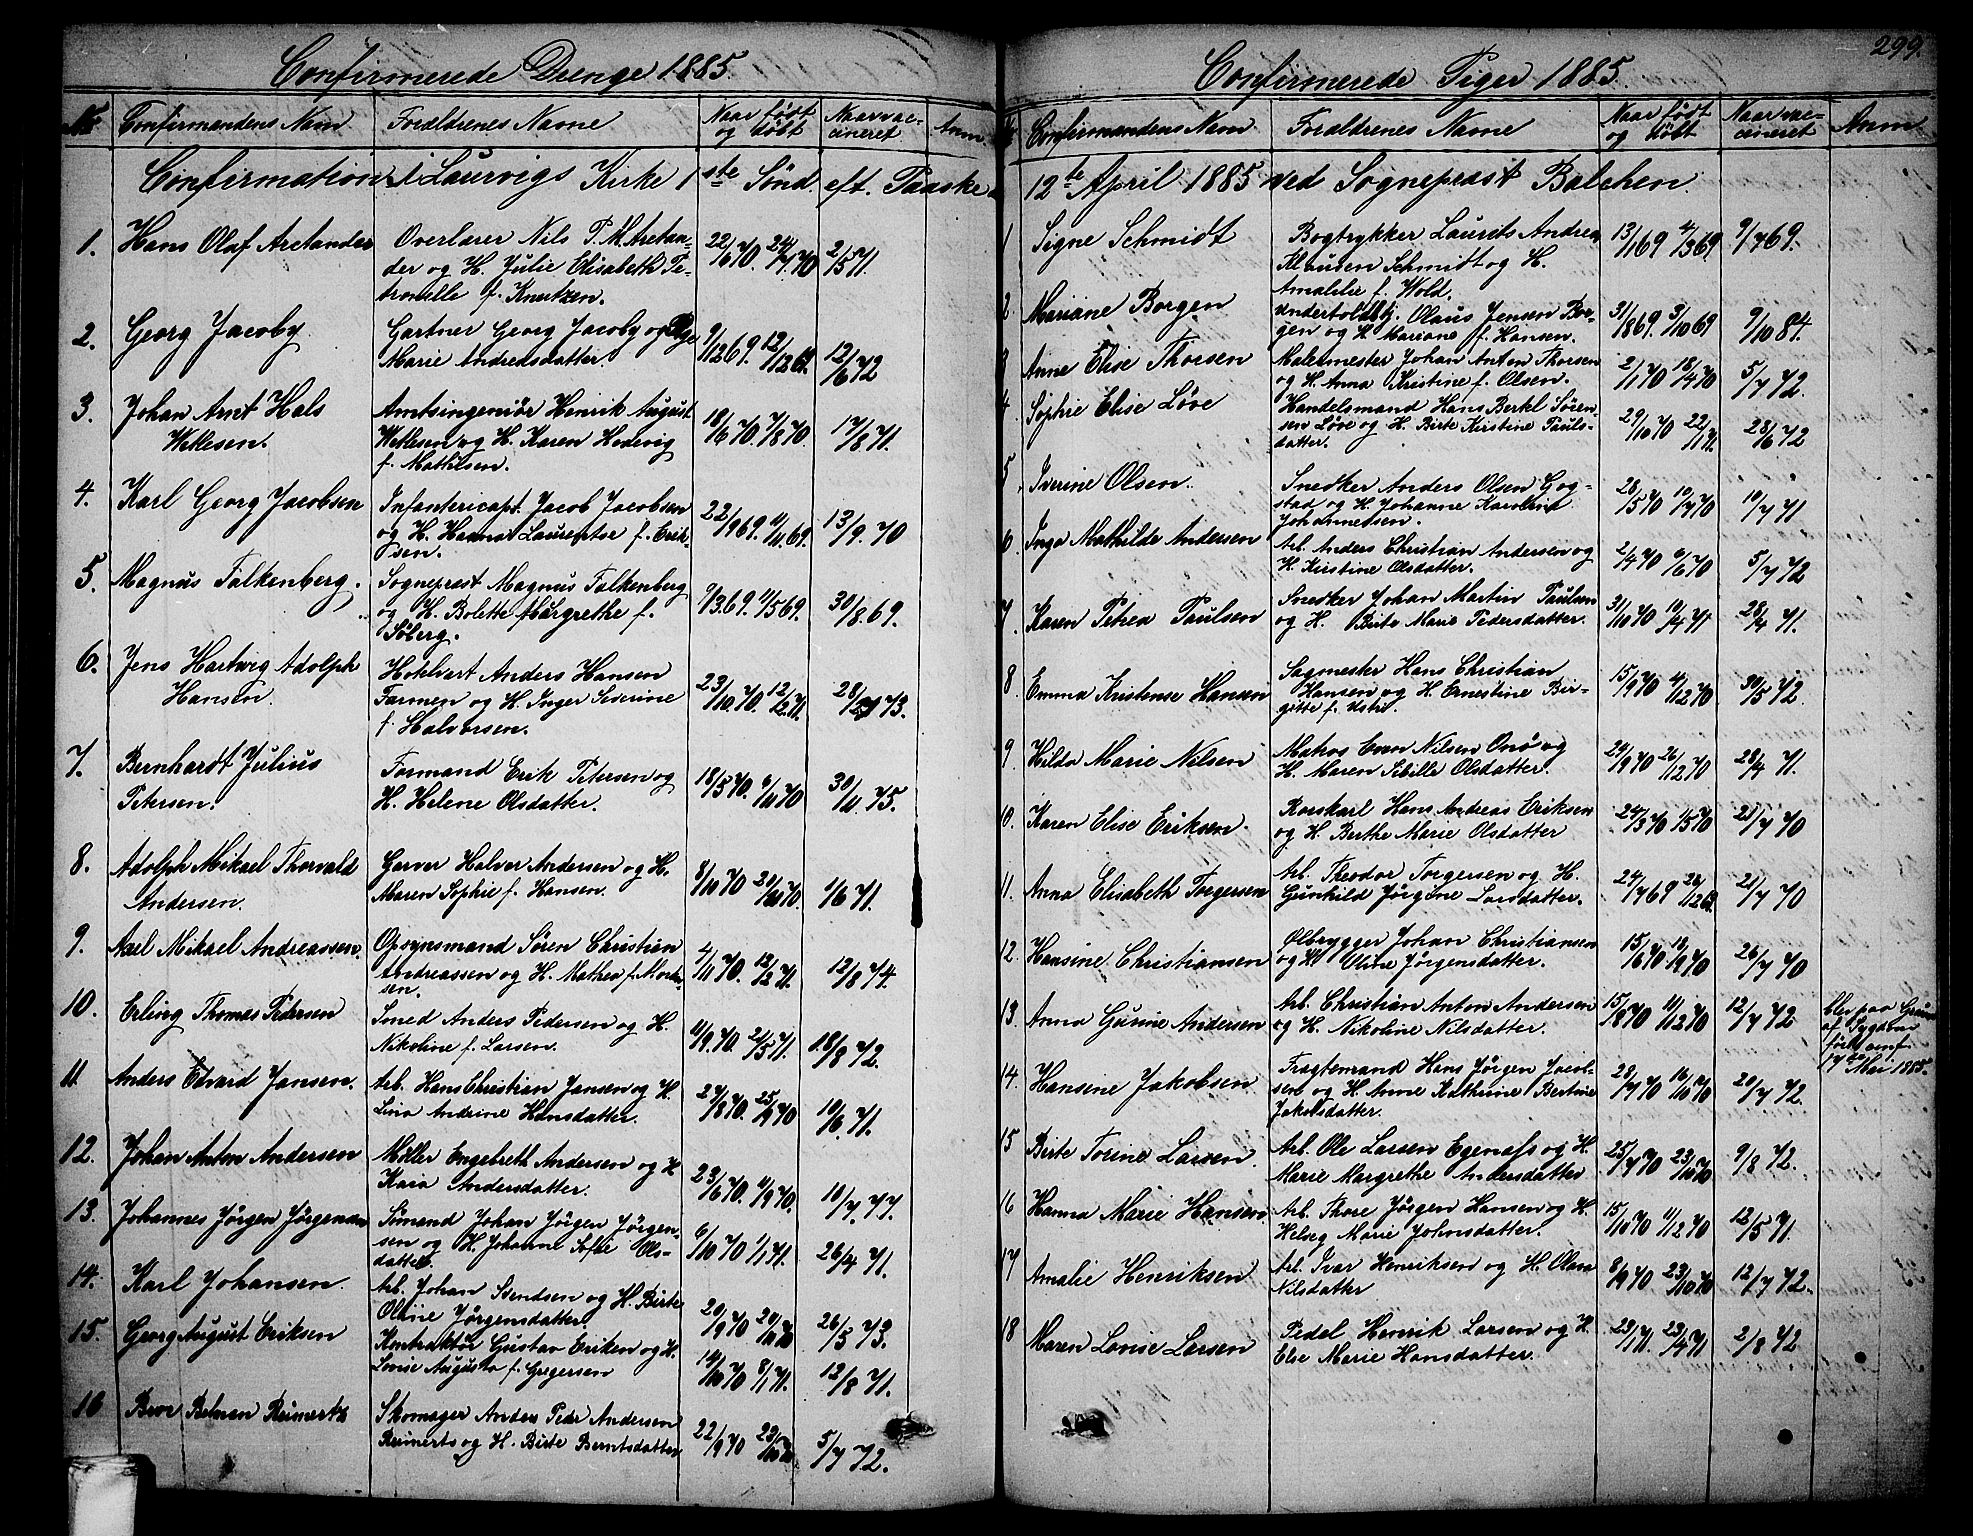 299.
Confirmerede Drenge 1885.
No Confirmandens Navn Forældrenes Navne Naar født og döbt Naar vaccineret Anm.
Confirmation i Laurvigs Kirke 1ste Sönd. eft. Paaske
1. Hans Olaf Arctander Overlærer Nils P. M. Arctan- 22/6 70. 24/7 70 2/5 71.
der og H. Julie Elisabeth Pe-
tronelle f. Knutzen.
2. Georg Jacoby Gartner Georg Jacoby og Pige 9/12 69. 12/12 69. 12/6 72
Marie Andreasdatter.
3. Johan Arnt Hals Amtsingeniör Henrik August 18/6 70. 7/8 70. 17/8 71.
Wettesen. Wettesen og H. Karen Hedevig
f. Mathisen.
4. Karl Georg Jacobsen Infantericapt. Jacob Jacobsen 22/9 69. 11/11 69. 13/9. 70
og H. Hanna Laurentse f. Erik-
sen.
5. Magnus Falkenberg. Sogneprest Magnus Falkenberg 9/3 69. 11/5 69. 30/8. 69.
og H. Bolette Margrethe f.
Söberg.
6. Jens Hartwig Adolph Hotelvert Anders Hansen 23/10. 70. 12/2 71. 28/ 73.
Hansen. Farmen og H. Inger Severine
f. Halvorsen.
7. Bernhardt Julius Formand Erik Petersen og 18/5 70. 6/11 70 30/11. 75.
Petersen. H. Helene Olsdatter.
8. Adolph Mikael Thorvald Garver Halvor Andersen og H. 8/10 70 21/ 70. 1/6 71.
Andersen. Maren Sophie f. Hansen.
9. Axel Mikael Andreassen. Opsynsmand Sören Christian 4/11 70. 12/2 71. 12/8 74.
Andreassen og H. Mathea f. Morten-
sen.
10. Erling Thomas Pedersen Smed Anders Pedersen og H. 11/9. 70. 21/5 71. 18/8 72.
Nikoline f. Larsen.
11 Anders Edvard Jansen. Arb. Hans Christian Jansen og H. 27/8 70. 25/9 70 10/6. 71.
Lina Andrine Hansdatter.
12. Johan Anton Andersen Möller Engebreth Andersen og H 23/6 70. 11/9 70. 10/7. 77.
Kara Andersdatter.
13. Johannes Jörgen Jörgensen Sömand Johan Jörgen Jörgen- 6/10 70 1/1 71. 26/4 71.
sen og H. Johanne Sofie Ols-
datter.
14. Karl Johansen. Arb. Johan Svendsen og H. Birte 20/9 70 20/ 70 26/5 73.
Oline Jörgensdatter.
15. Georg August Eriksen Kontraktör Gustav Eriksen og H. 14/10 70 8/1 71. 12/8 71.
Lovise Augusta f. Gregersen
16 Reinertz Skomager Anders Peder Andersen 22/9 70 23/10 70 5/7 72.
Reinerts og H. Birte Berntsdatter
Confirmerede Piger 1885.
Confirmandens Navn Forældrenes Navne Naar født og döbt Naar vaccineret Anm
12te April 1885 ved Sogneprest Balchen.
1 Signe Schmidt Bogtrykker Laurits Andreas 13/1 69 4/3 69. 9/7 69.
Klausen Schmidt og H.
Amalie f. Wold.
2 Mariane Borgen Undertoldbtj. Olaus Jensen Bor- 31/8 69. 3/10 69 9/10 84.
gen og H. Mariane f. Hansen.
3 Anne Elise Thorsen Malermester Johan Anton Thorsen 2/1 70 18/4 70 5/7 72.
og H. Anna Kristine f. Olsen.
4. Sophie Elise Löve Handelsmand Hans Berkl Sören- 29/10 70 22/1 71. 28/6 72
sen Löve og H. Birte Kirstine Pauls-
datter.
5 Iverine Olsen. Snedker Anders Olsen Gog- 28/5 70 10/7 70 10/7 71
stad og H. Johanne Karoline
Johannessen.
6 Inga Mathilde Andersen Arb. Anders Christian Andersen og 2/4 70 6/6 70 5/7 72
H. Kirstine Olsdatter.
7. Karen Petrea Paulsen Snedker Johan Martin Paulsen 31/10 70 10/4 71 28/4 71.
og H. Birte Marie Pedersdatter.
8. Emma Kristense Hansen Sagmester Hans Christian 15/9 70 4/12 70 30/5 72.
Hansen og H. Ernestine Bir-
gitte f.
9 Hilda Marie Nilsen Matros Even Nilsen Onö og 29/9 70 26/12 70 28/4 71.
H. Maren Sibille Olsdatter.
10. Karen Elise Eriksen. Korskarl Hans Andreas Eriksen 24/3 70 1/5 70 23/7 70
og H. Berthe Marie Olsdatter
11. Anna Elisabeth Torgersen Arb. Theodor Torgersen og H. 24/7 69 26/12 69. 21/7 70
Gunhild Jörgine Larsdatter.
12. Hansine Christiansen Ölbrygger Johan Christiansen 15/6 70. 18/9 70 26/7 70
og H Oline Jörgensdatter.
13. Anna Gurine Andersen Arb. Christian Anton Andersen 15/8 70 11/12 70 12/7 72 blev paa Grund
og H. Nikoline Nilsdatter. af Sygdom
först conf
17de Mai 1885.
14. Hansine Jakobsen Fragtemand Hans Jörgen Jacob- 28/7 70 16/10 70 20/7 72.
sen og H. Anne Kathrine Bertine
Jakobsdatter.
15 Birte Torine Larsen. Arb. Ole Larsen Egenæs og H. 25/7 70 23/10 70 9/8 72.
Marie Margrethe Andersdatter
16 Hanna Marie Hansen Arb. Thore Jörgen Hansen og H. 15/10 70 11/12 70 12/5 71.
Helseg Marie Johnsdatter.
17 Amalie Henriksen Arb. Ivar Henriksen og H. Olava 8/9 70 23/10 70 12/7 72.
Nilsdatter
18 Maren Lovise Larsen Pedel Henrik Larsen og H. 23/1 71. 23/4 71 2/8 72
Else Marie Hansdatter.